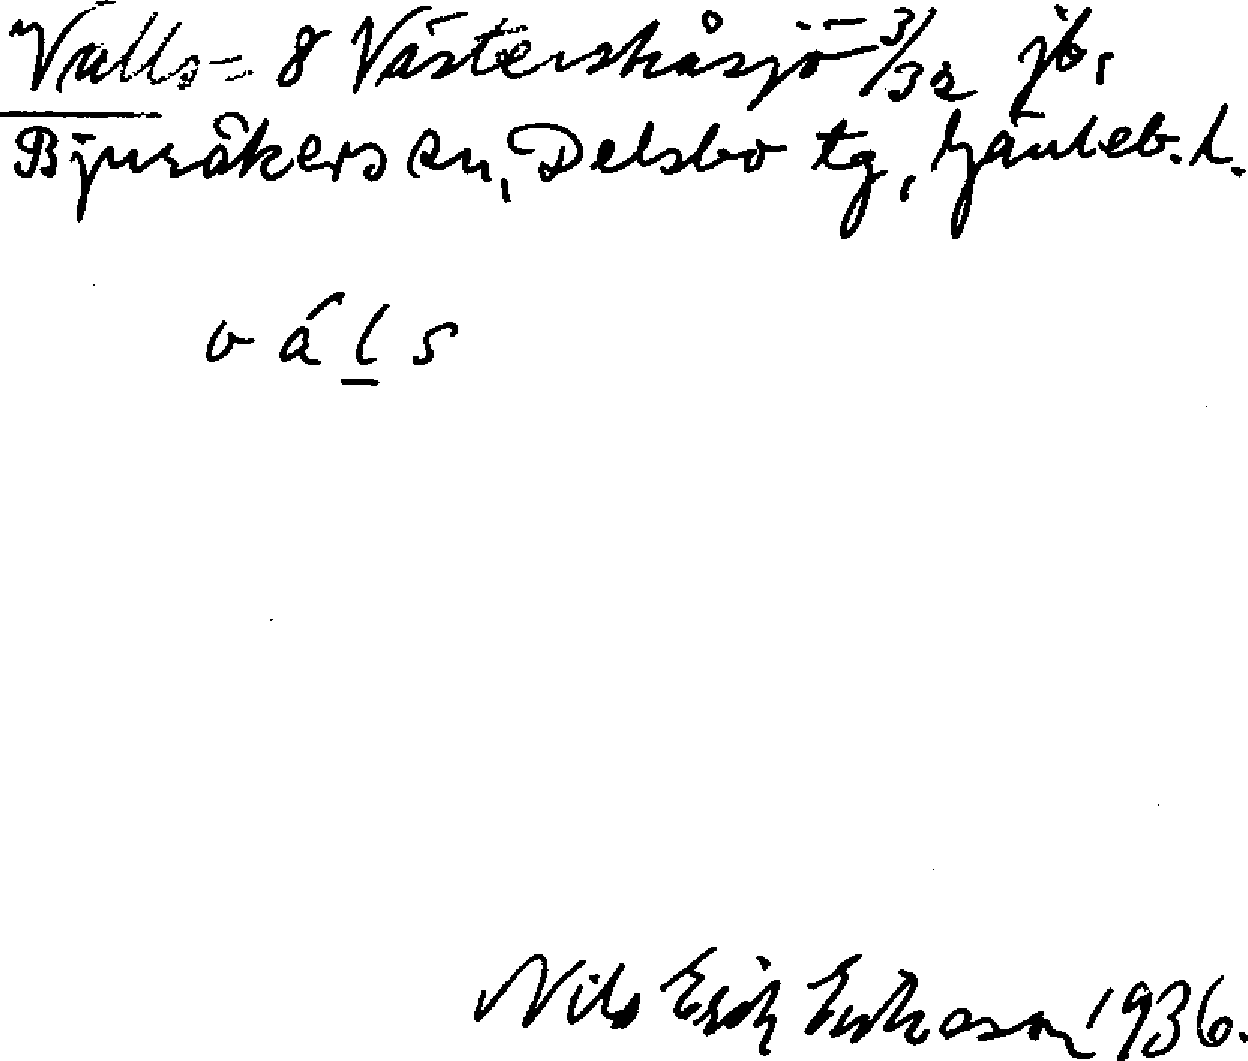 Valls- 8 Västerskåsjö 3/32 jb,
Bjuråkers sn, Delsbo tg, Gävleb. l.
v á l s
Nils Erik Eriksson 1936.